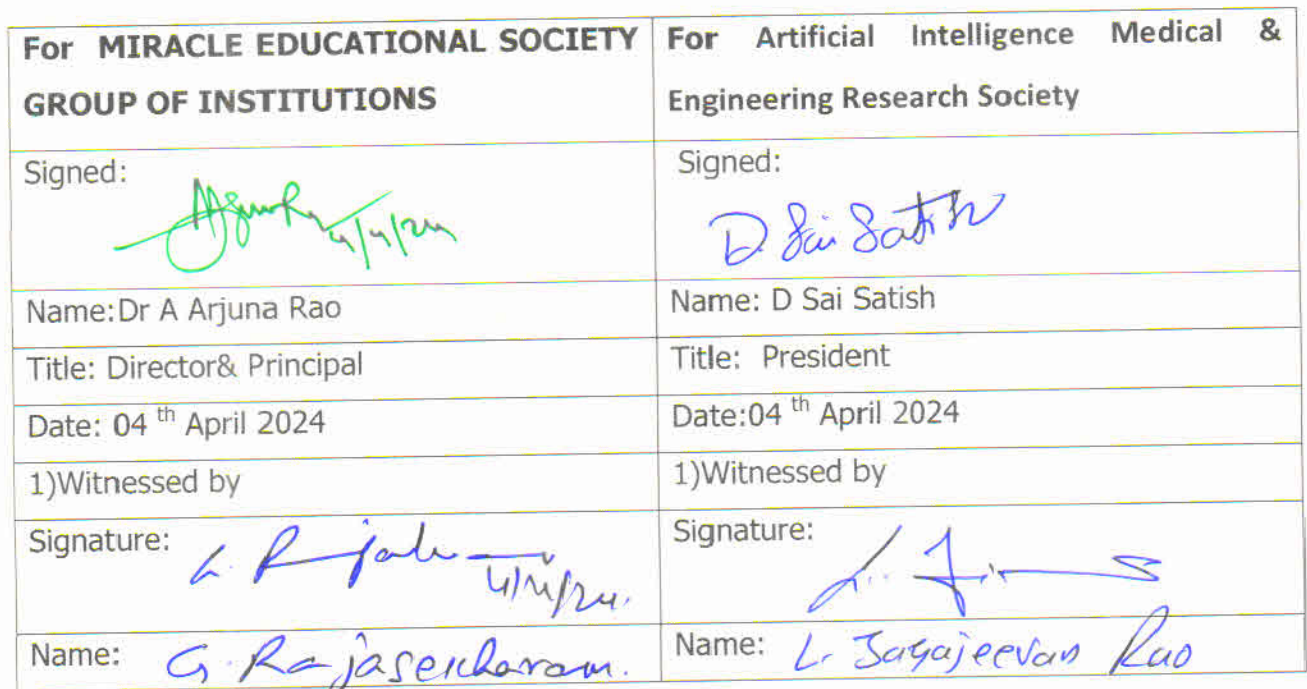 For MIRACLE EDUCATIONAL SOCIETY
GROUP OF INSTITUTIONS
For Artificial Intelligence Medical &
Engineering Research Society
Signed:
4/4/24
Signed:
D. Sai Satish
Name:Dr A Arjuna Rao
Name: D Sai Satish
Title: Director& Principal
Title: President
Date: 04 th April 2024
Date:04 th April 2024
1)Witnessed by
1)Witnessed by
Signature:
4/4/24.
Signature:
Name: G. Rajasekharam.
Name: L. Jagajeevan Rao